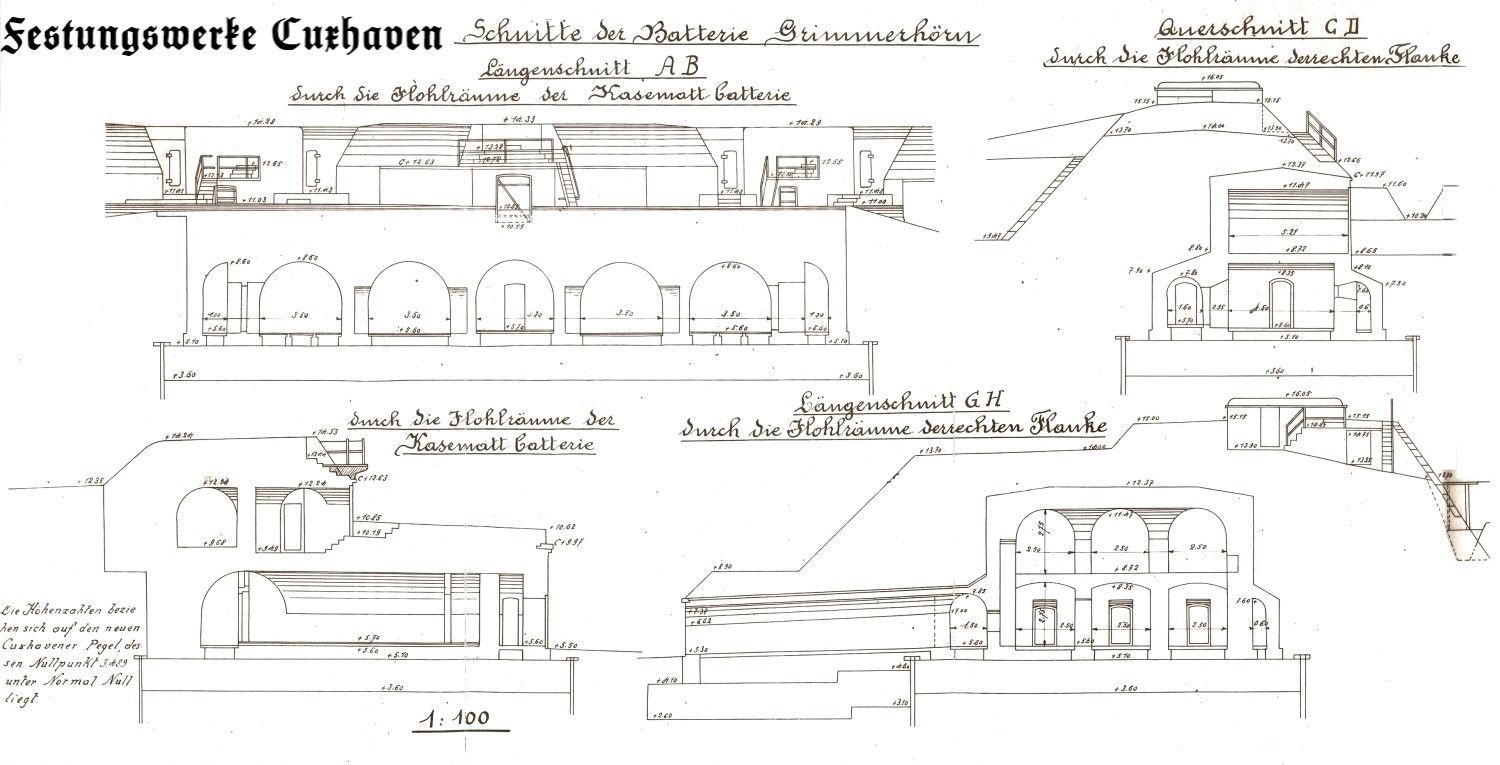 Festungswerke Cuxhaven
Schnitte der Batterie Grimmerhörn
Längenschnitt A B
durch die Hohlräume der Kasematt batterie
Querschnitt C D
durch die Hohlräume der rechten Flanke
+ 14.29
+ 14.33
+ 14.29
C+ 12.63
+ 12.65
+ 12.65
+ 11.43
+ 11.43
+ 11.03
+ 11.43
+ 11.43
+ 11.00
+ 10.19
+ 8.60
+ 8.60
+ 8.60
1.00
3.50
3.50
3.50
3.50
1.00
+ 5.60
+ 5.60
+ 5.70
+ 5.60
+ 5.10
+ 5.10
+ 3.60
+ 3.60
+ 16.05
15.15 +
+ 15.15
+ 13.70
+ 14.00
+ 13.90
+ 12.65
+ 12.37
C+ 11.97
+ 11.60
+ 11.47
+ 10.24
+ 9.47
5.21
8.80 +
+ 8.72
+ 8.65
7.90 +
+ 7.80
+ 8.35
+ 8.10
+ 7.50
1.60
0.95
4.50
0.6
+ 5.70
+ 5.60
+ 5.10
+ 3.60
durch die Hohlräume der
Kasematt batterie
+ 14.24
+ 14.33
+ 12.35
C+ 12.63
+ 12.24
+ 12.24
+ 10.85
+ 10.19
+ 10.62
C+ 9.97
+ 9.68
+ 9.49
+ 5.70
+ 5.60
+ 5.10
+ 5.60
+ 5.50
+ 3.60
Die Höhenzahlen bezie
hen sich auf den neuen
Cuxhavener Pegel, des
sen Nullpunkt 3,489
unter Normal Null
liegt.
1: 100
Längenschnitt G H
durch die Hohlräume der rechten Flanke
+ 16.05
+ 15.15
+ 15.15
+ 15.00
+ 14.00
+ 13.70
+ 13.90
+ 12.37
+ 11.47
2.75
2.50
2.50
2.50
+ 8.72
+ 8.35
+ 8.30
+ 7.37
+ 6.62
+ 7.85
+ 7.00
7.60 +
2.75
1.50
2.50
2.50
2.50
0.60
+ 5.60
+ 5.60
+ 5.30
+ 5.10
+ 4.80
+ 4.10
+ 3.60
+ 3.10
+ 2.60